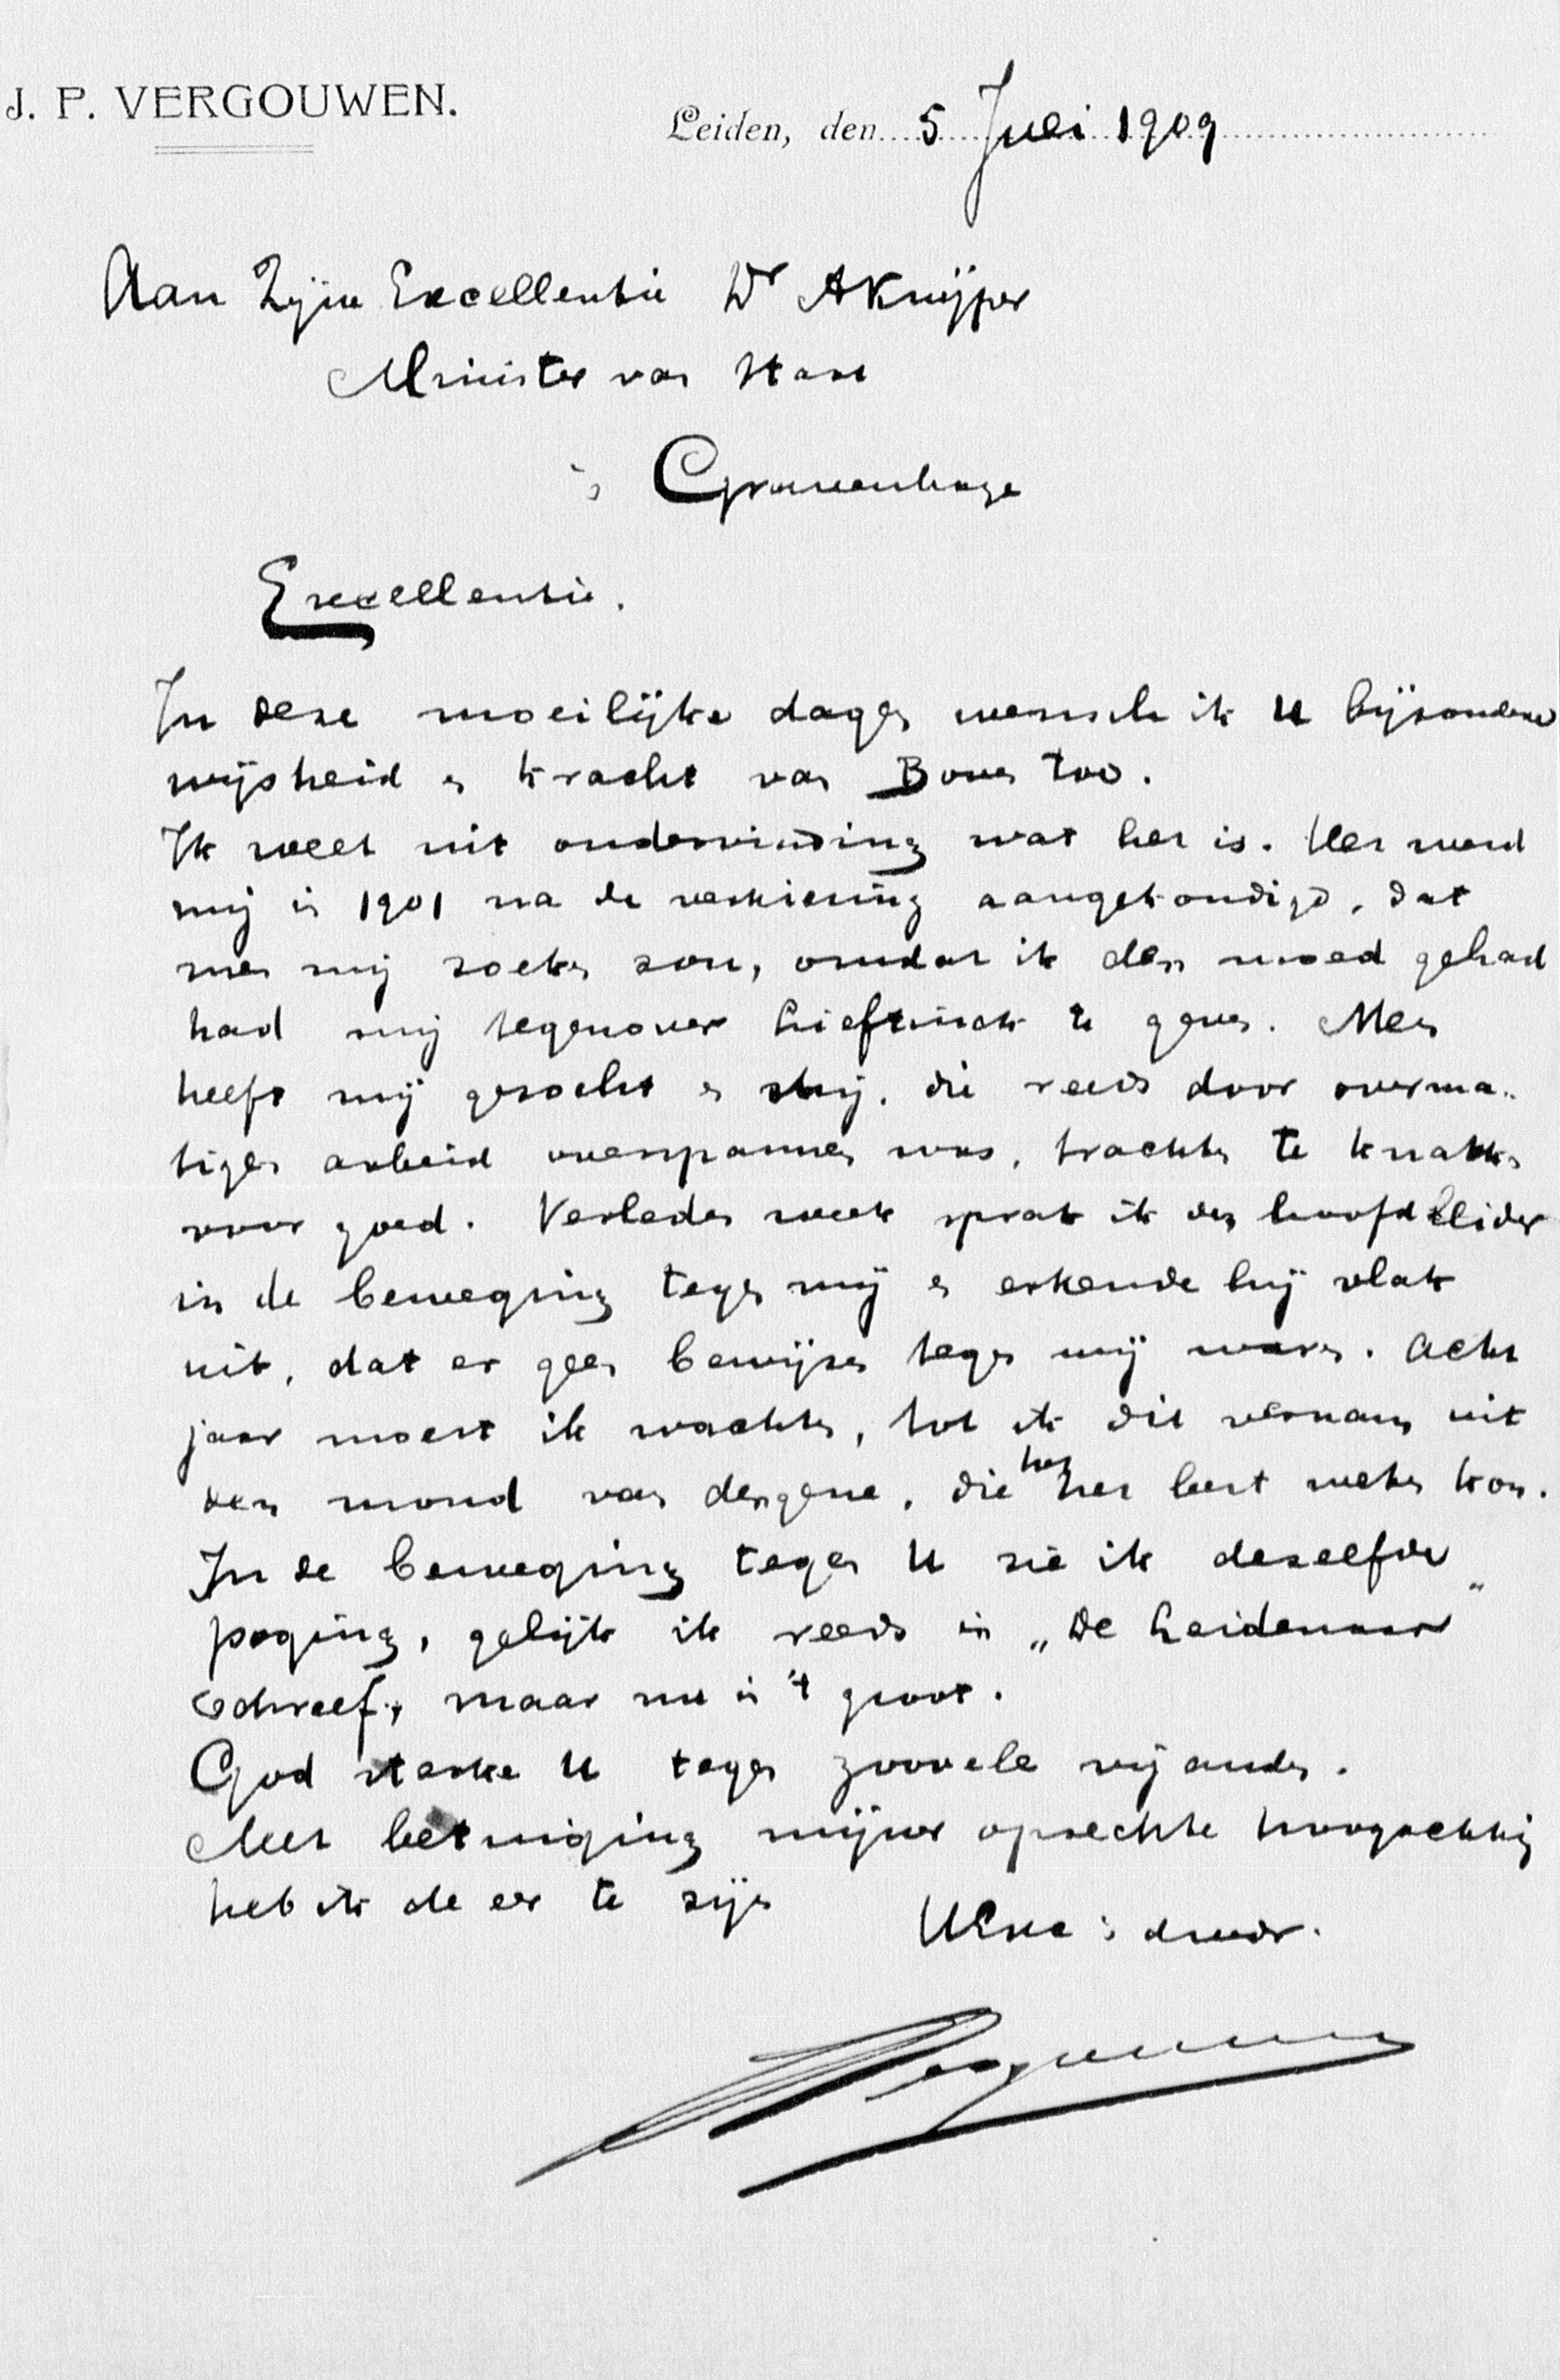 J. P. VERGOUWEN.
Leiden, den 5 Juli 1909
Aan Zijne Excellentie Dr A Kuijper
Minister van Staat
's Gravenhage
Excellentie.
In deze moeilijke dagen wensch ik U bijzondere
wijsheid en kracht van Boven toe.
Ik weet uit ondervinding wat het is. Het werd
mij in 1901 na de verkiezing aangekondigd, dat
men mij zoeken zou, omdat ik den moed gehad
had mij tegenover Lieftinck te geven. Men
heeft mij gezocht en mij, die reeds door overma-
tigen arbeid overspannen was, trachten te knakken
voor goed. Verleden week sprak ik den hoofdleider
in de beweging tegen mij en erkende hij vlak
uit, dat er geen bewijzen tegen mij waren. Acht
jaar moest ik wachten, tot ik dit vernam uit
den mond van dengene, die het best weten kon.
In de beweging tegen U zie ik dezelfde
poging, gelijk ik reeds in „De Leidenaar"
schreef, maar nu in 't groot.
God sterke U tegen zoovele vijanden.
Met betuiging mijner oprechte hoogachting
heb ik de eer te zijn
UExc's dwdr.
Vergouwen